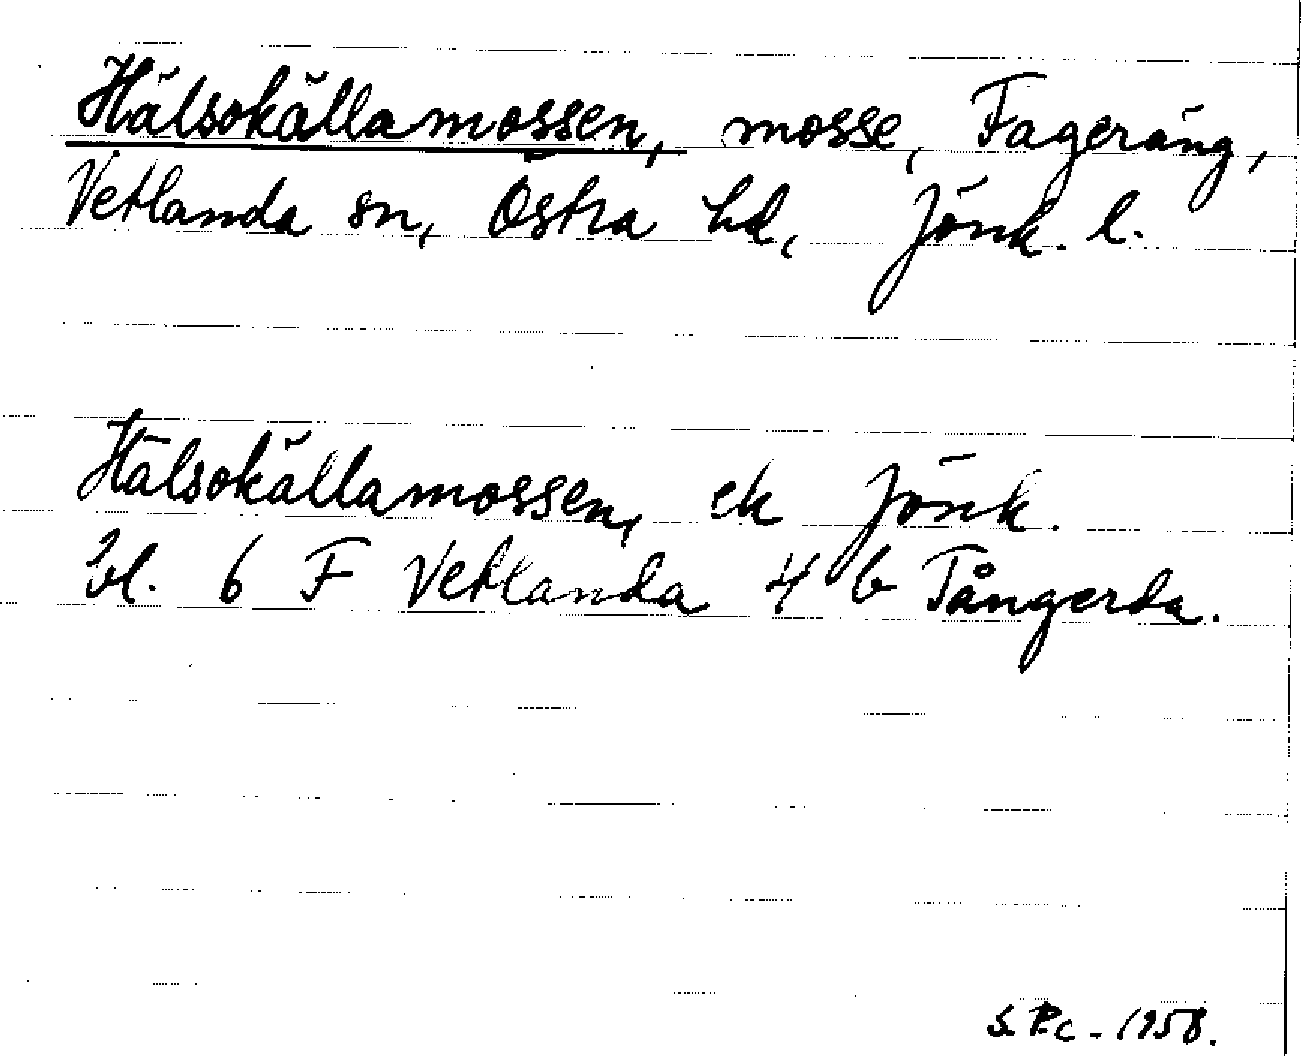 Hälsokällamossen, mosse, Fageräng,
Vetlanda sn, Östra hd, Jönk. l.
Hälsokällamossen, ek Jönk.
bl. 6 F Vetlanda 4 b Tångerda.
1958.